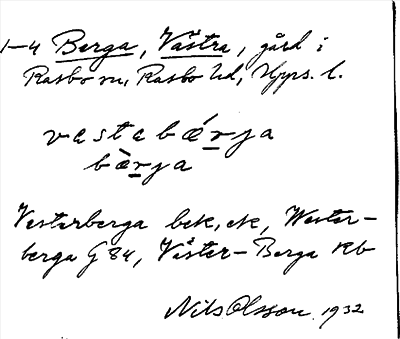 1–4 Berga, Västra, gård i
Rasbo sn, Rasbo hd, Upps. l.
vestebǽrja
bæ̀rja
Vesterberga bek, ek, Wester-
berga G 84, Väster-Berga Kb
Nils Olsson. 1932